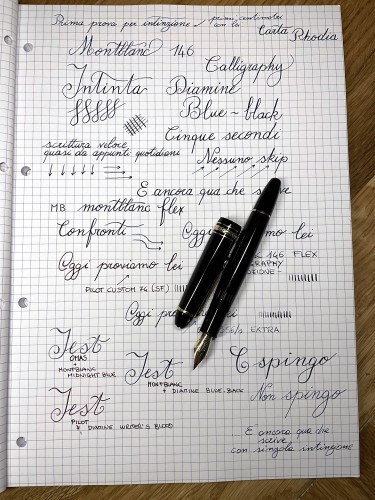 Prima prova per intinzione /
primi centimetri
con la
Carta Rhodia
Montblanc 146
Calligraphy
Intinta Diamine
Blue-black
Cinque secondi
scrittura veloce
quasi da appunti quotidiani
Nessuno skip
E ancora qua che
MB montblanc flex
Confronti
Oggi lei
146 FLEX
Oggi proviamo lei
PILOT CUSTOM 74 (SF)
Oggi proviamo lei
EXTRA
Test
OMAS
+
MONTBLANC
MIDNIGHT BLUE
Test
MONTBLANC
+ DIAMINE BLUE-BACK
E spingo
Non spingo
Test
PILOT
+
DIAMINE WRITER'S BLOOD
... E ancora qua che
scrive
con singola intinzione